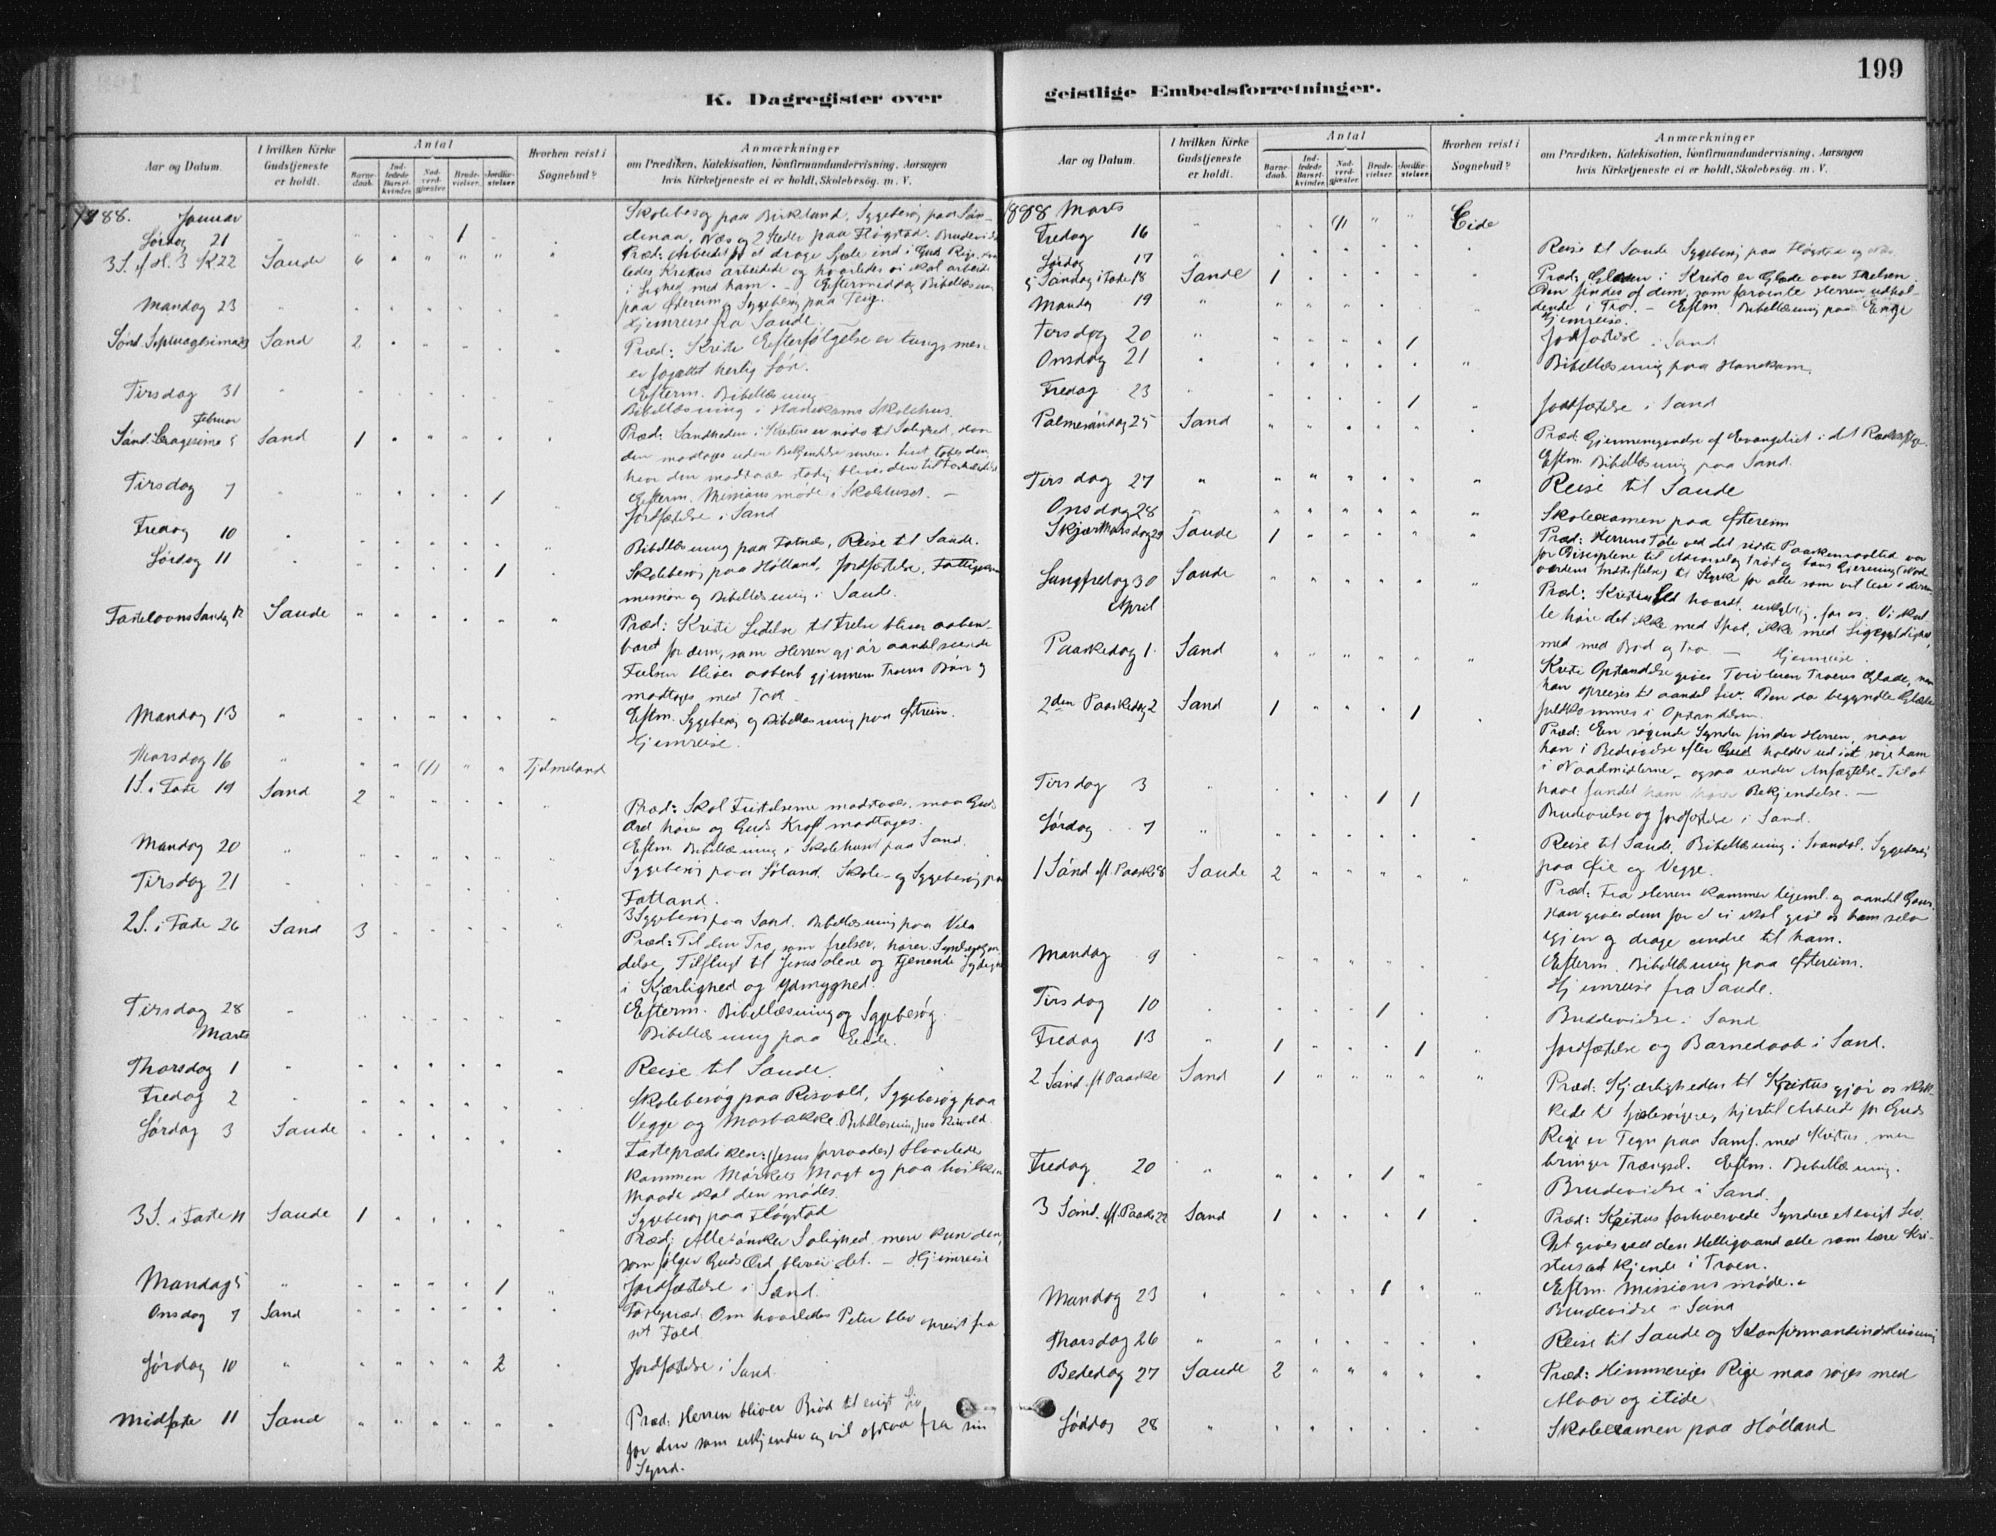 199
K. Dagregister over
geistlige Embedsforretninger.
Aar og Datum.
I hvilken Kirke
Gudstjeneste
er holdt.
Antal
Barne-
daab.
Ind-
ledede
Barsel-
kvinder.
Nad-
verd-
gjæster.
Brude-
vielser.
Jordfæ-
stelser.
Hvorhen reist i
Sognebud?
Anmærkninger
om Prædiken, Katekisation, Konfirmandundervisning, Aarsagen
hvis Kirketjeneste ei er holdt, Skolebesøg. m. V.
1888. Januar
Skolebesøg paa Birkland, Sygebesøg paa
Lørdag 21 1
Næs og 2 Steder paa Fløgstad.
22 Sande 6
Præd: Arbeidet at drage Sjæle ind i Guds Rige,
ledes Kristus arbeidede og hvorledes vi skal arbeide
i Lighed med ham. - Eftermiddag Bibellæsning
paa Østereim og Sygebesøg paa Teig.
Mandag 23
Hjemreise fra Sande.
Sønd. Septuagesima Sand 2
Præd: Kristi Efterfølgelse er tung men
herlig Løn.
Efterm. Bibellæsning.
Tirsdag 31
Bibellæsning i Hanekams Skolehus.
Februar
Sønd. 5 Sand 1
Præd: Sandheden i Kristus er nødv til Salighed,
den modtages uden Bekjendelse
Efterm. Missionsmøde i Skolehuset. -
Tirsdag 7 1
Jordfæstelse i Sand
Fredag 10
Bibellæsning paa Fatnæs, Reise til Sande.
Lørdag 11 1
Skolebesøg paa Hølland, Jordfæstelse,
og Bibellæsning i Sande.
Fastelavns Søndag 12 Sande
Præd: Kristi Lidelse til Frelse bliver aaben-
baret for dem, som Herren gjør aandel seende
bliver aabent gjennem Troens Bøn og
modtages med Tak
Eftm. Sygebesøg og Bibellæsning paa Østreim.
Mandag 13
Hjemreise.
Thorsdag 16 (1) Tjelmeland
1 S. i Faste 19 Sand 2
Præd: Skal Fristelserne modstaaes, maa Guds
Ord høres og Guds Kraft modtages.
Eftm. Bibellæsning i Skolehuset paa Sand.
Mandag 20
Sygebesøg paa Løland. Skole- og Sygebesøg paa
Tirsdag 21
Fatland.
3 Sygebesøg paa Sand. Bibellæsning paa Vela
2 S. i Faste 26 Sand 3
Præd: Til den Tro, som frelser, hører
delse, Tilflugt til Jesus alene og tjenende Lydighed
i Kjærlighed og Ydmyghed.
Efterm. Bibellæsning og Sygebesøg.
Tirsdag 28
Bibellæsning paa Eide.
Marts
Thorsdag 1
Reise til Sande.
Fredag 2
Skolebesøg paa Risvold, Sygebesøg paa
Vegge og Mosbakke. Bibellæsning paa Risvold
Lørdag 3 Sande
Fasteprædiken: (Jesus forraades) Hvorledes
kommen Mørkets Magt og paa hvilken
Maade skal den mødes.
Sygebesøg paa Fløgstad
3 S. i Faste 4 Sande 1
Præd: Alle ønsker Salighed, men kun den,
som følger Guds Ord bliver det. - Hjemreise
Mandag 5 1
Jordfæstelse i Sand.
Onsdag 7 Sand
Fastepræd: Om hvorledes Peter blev opreist fra
sit Fald.
Lørdag 10 2
Jordfæstelse i Sand
Midfaste 11 Sand
Præd: Herren bliver Brød til evigt Liv
for den som erkjender og vil opstaa fra sin
Synd.
Aar og Datum.
I hvilken Kirke
Gudstjeneste
er holdt.
Antal
Barne-
daab.
Ind-
ledede
Barsel-
kvinder.
Nad-
verd-
gjæster.
Brude-
vielser.
Jordfæ-
stelser.
Hvorhen reist i
Sognebud?
Anmærkninger
om Prædiken, Katekisation, Konfirmandundervisning, Aarsagen
hvis Kirketjeneste ei er holdt, Skolebesøg. m. V.
1888 Marts
Fredag 16 (1) Eide
Lørdag 17
Reise til Sande Sygebesøg paa Høgstad og
5 Søndag i Faste 18 Sande 1
Præd: Glæden i Kristo er Glæde over Frelsen.
Den findes af dem, som forvente Herren udhol-
dende i Tro. - Eftm. Bibellæsning paa Enge
Mandag 19
Hjemreise.
Tirsdag 20 1
Jordfæstelse i Sand
Onsdag 21
Bibellæsning paa Hanekam.
Fredag 23 1
Jordfæstelse i Sand
Palmesøndag 25 Sand
Præd: Gjennemgaaelse af Evangeliet i det
Eftm. Bibellæsning paa Sand.
Tirsdag 27
Reise til Sande
Onsdag 28
Skolexamen paa Østereim
Skjærthorsdag 29 Sande 1
Præd: Herrens Tale ved det sidste Paaskemaaltid var
for Disciplene til Advarsel og Trøst og hans Gjerning (Nad-
verdens Indstiftelse) til Styrke for alle som vil
Langfredag 30 Sande
Præd: Kristus led haardt, uskyldig, for os. Vi skal
høre det ikke med Spot, ikke med Ligegyldighed,
men med Bod og Tro - Hjemreise.
April
Paaskedag 1. Sand
Kristi Opstandelse giver Tvivleren Troens Glæde, naar
han opreises til aandel Liv. Den da begyndte Glæde
fuldkommes i Opstandelsen.
2den Paaskedag 2 Sand 1 1
Præd: En søgende Synder finder Herren, naar
han i Bedrøvelse efter Gud holder ud i at søge ham
i Naademidlerne - ogsaa under Anfægtelse - Til at
have fundet ham hører Bekjendelse. -
Tirsdag 3 1 1
Brudevielse og Jordfæstelse i Sand.
Lørdag 7
Reise til Sande, Bibellæsning i Svandal. Sygebesøg
paa Øie og Vegge.
1 Sønd eft. Paaske 8 Sande 2
Præd: Fra Herren kommer legeml. og aandel Gaver.
Han giver dem for at vi skal give os ham selv
igjen og drage andre til ham.
Efterm. Bibellæsning paa Østereim.
Mandag 9
Hjemreise fra Sande.
Tirsdag 10 1
Brudevielse i Sand
Fredag 13 1 1
Jordfæstelse og Barnedaab i Sand.
2 Sønd eft Paaske Sand 1
Præd: Kjærligheden til Kristus gjør os skik-
kede til Sjælesørgere, hjertel Arbeide for Guds
Rige er Tegn paa Samf. med Kristus, men
bringer Trængsel. Eftm. Bibellæsning.
Fredag 20 1
Brudevielse i Sand.
3 Sønd. eft. Paaske 22 Sand 1 1
Præd: Kristus forhvervede Syndere et evigt Liv.
Det gives ved den Helligaand alle som lære Kri-
stus at kjende i Troen.
Eftm. Missionsmøde.
Mandag 23 1
Brudevielse i Sand
Thorsdag 26
Reise til Sande og Konfirmandindskrivning
Bededag 27 Sande 2
Præd: Himmeriges Rige maa søges med
Alvor og itide
Lørdag 28
Skolexamen paa Hølland